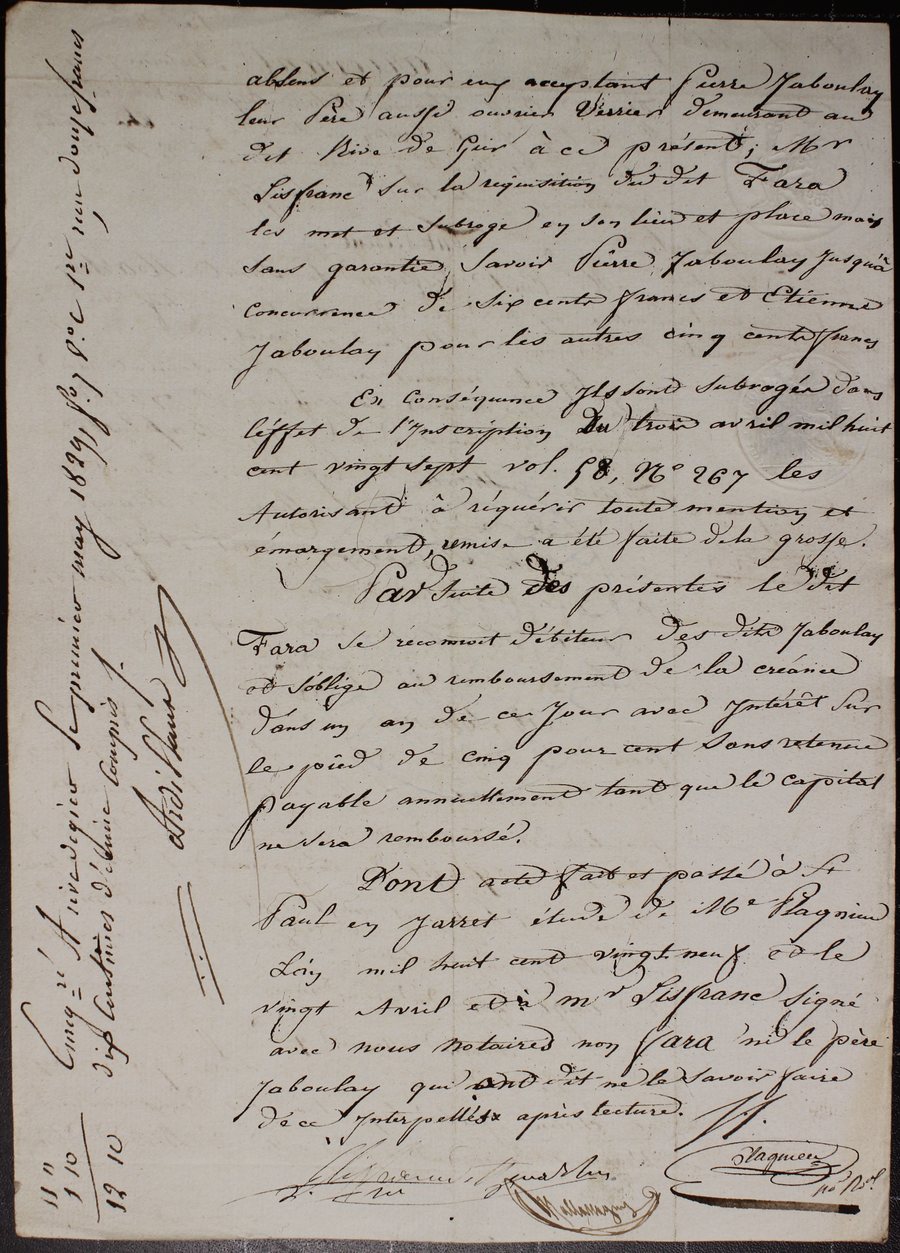 absens et pour eux acceptant Pierre Jaboulay
leur Père aussi ouvrier Verrier demeurant au
dit Rive de Gier à ce présent; Mr
Lisfranc sur la réquisition du dit Fara
les met et subroge en son lieu et place mais
sans garantie, savoir Pierre Jaboulay jusqu'à
Concurrence de Six cents francs et Etienne
Jaboulay pour les autres cinq cents francs
En Conséquence Ils sont subrogés dans
l'effet de l'Inscription Du trois avril mil huit
cent vingt sept vol. 58, No 267 les
Autorisant à réquérir toute mention et
émargement, remise a été faite de la grosse.
Par Suite des présentes le dit
Fara se reconnoit débiteur des dits Jaboulay
et s'oblige au remboursement de la créance
dans un an de ce Jour avec Intérêt Sur
le pied de Cinq pour cent Sans retenue
payable annuellement tant que le capital
ne sera remboursé.
Dont acte fait et passé à St
Paul en Jarret étude de Me Plagnieu
L'an mil huit cent vingt neuf et le
vingt Avril et à mr Lisfranc signé
avec nous notaires non Fara ni le père
Jaboulay qui ont dit ne le savoir faire
de ce Interpellés après lecture.
Plagnieu
Rive de gier le premier may 1829, fo 7 vo c 1re reçu douze francs
dix centimes décime compris
11 "
1 10
12 10